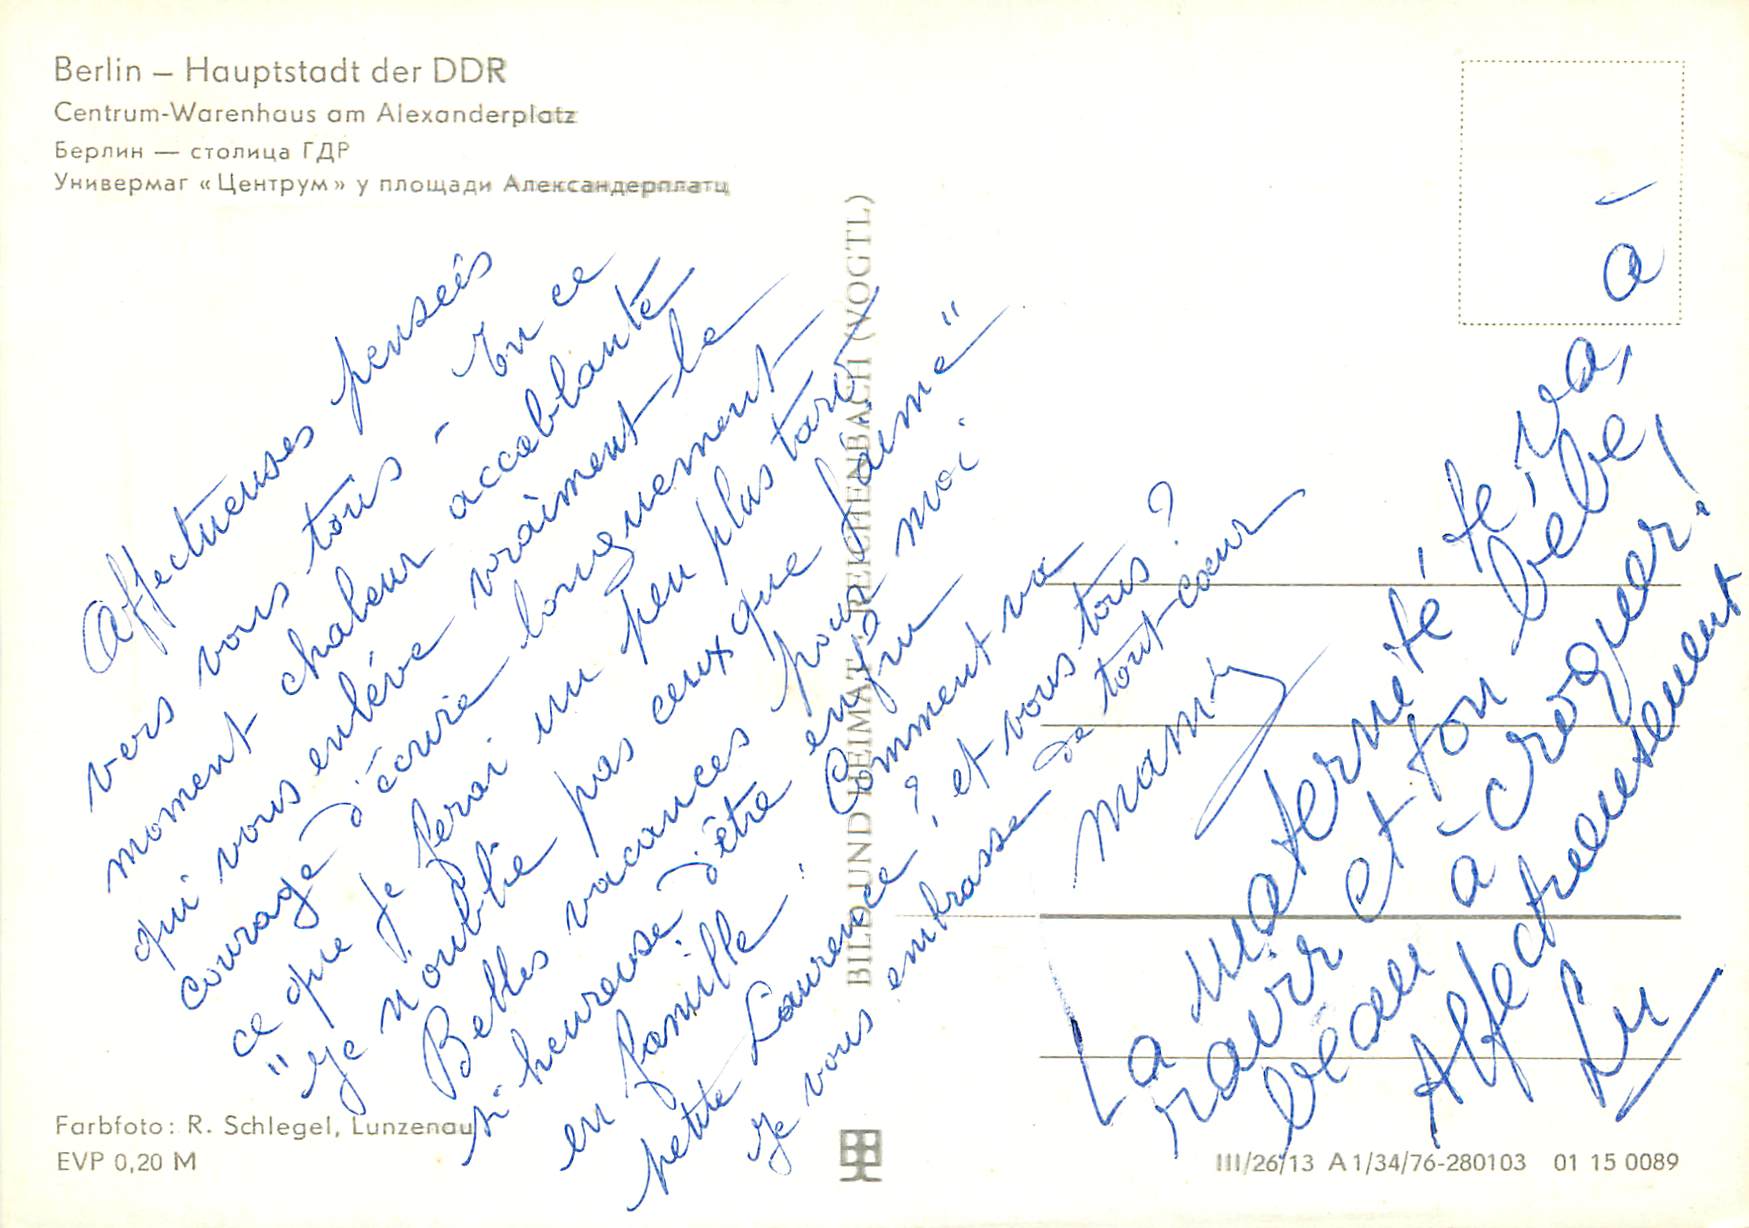 Berlin – Hauptstadt der DDR
Centrum-Warenhaus am Alexanderplatz
Берлин — столица ГДР
Универмаг «Центрум» у площади Александерплатц
Affectueuses pensées
vers vous tous - En ce
moment chaleur accablante
qui vous enlève vraiment le
courage d'écrire longuement
ce que je ferai un peu plus tard
"Je n'oublie pas ceux que j'aime"
Belles vacances pour moi
si heureuse d'être enfin
en famille! Comment va
petite Laurence? et vous tous?
Je vous embrasse de tout cœur
mamy
La maternité te va à
ravir et ton bébé,
béau à croquer!
Affectueusement
Lu
BILD UND HEIMAT REICHENBACH (VOGTL)
Farbfoto: R. Schlegel, Lunzenau
EVP 0,20 M
III/26/13 A 1/34/76-280103 01 15 0089